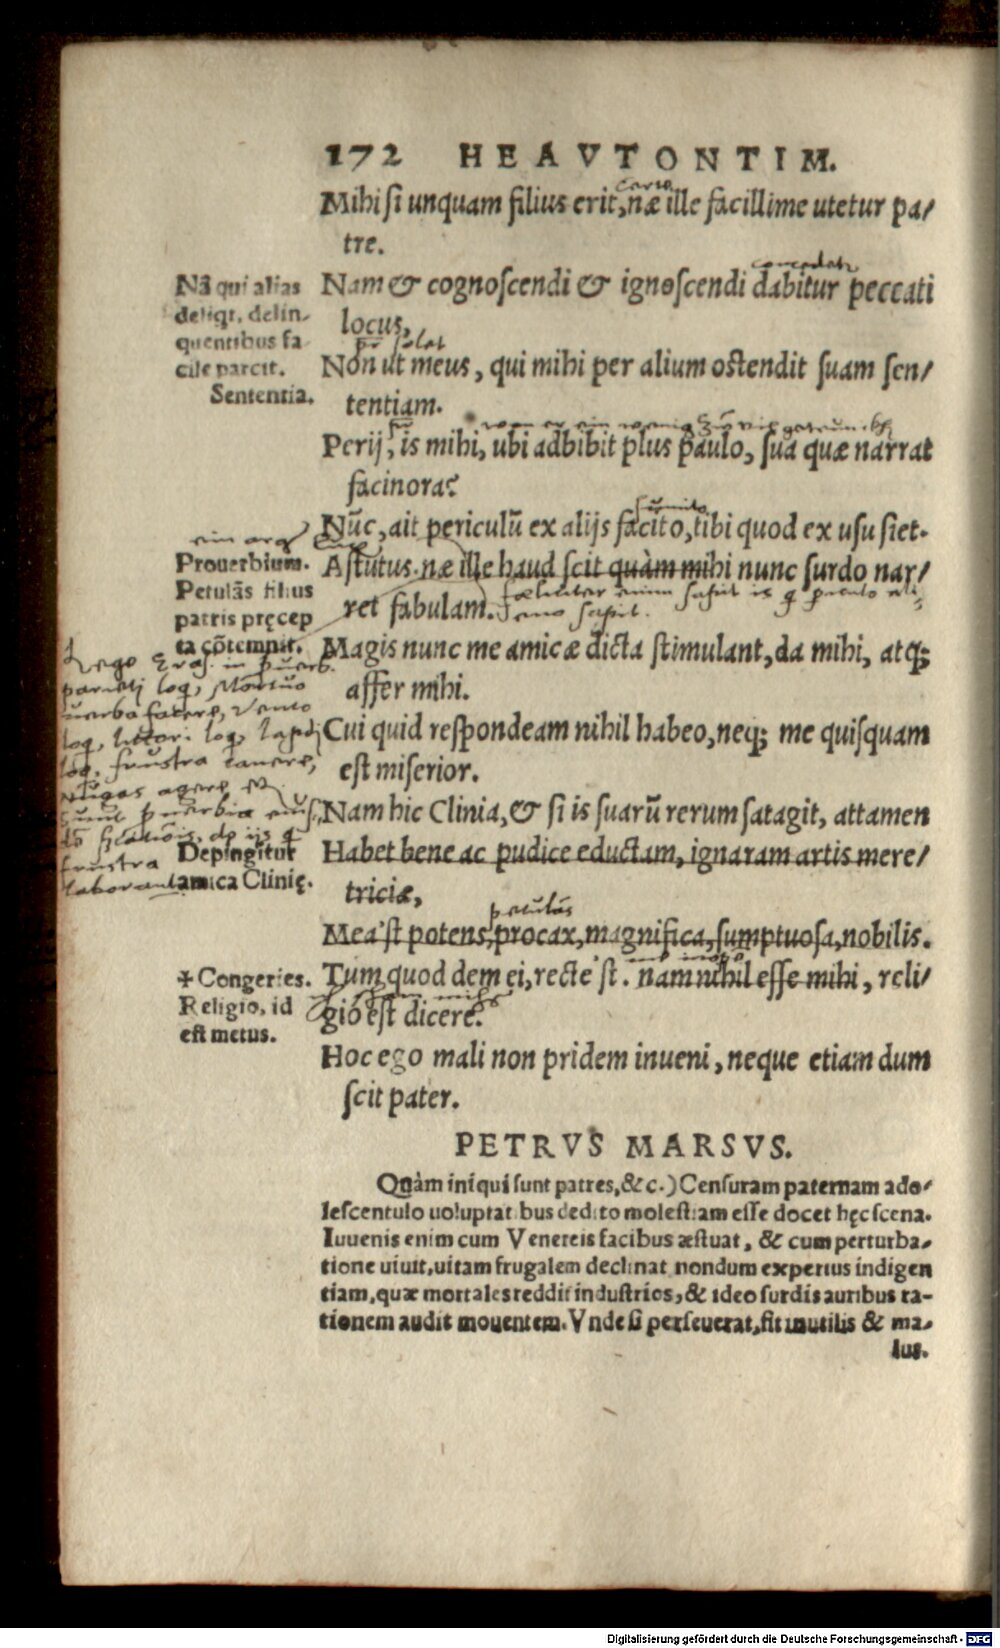 172 HEAVTONTIM.
certo
Mihi si unquam filius erit, næ ille facillime utetur pa/
tre.
concedatr
Nam & cognoscendi & ignoscendi dabitur peccati
locus,
solet
Non ut meus, qui mihi per alium ostendit suam sen/
tentiam.
Perij, is mihi, ubi adbibit plus paulo, sua quæ narrat
facinora?
Nūc, ait periculū ex alijs facito, tibi quod ex usu siet.
Astutus. næ ille haud scit quàm mihi nunc surdo nar/
ret fabulam.
Magis nunc me amicæ dicta stimulant, da mihi, atq;
affer mihi.
Cui quid respondeam nihil habeo, neq; me quisquam
est miserior.
Nam hic Clinia, & si is suarū rerum satagit, attamen
Habet bene ac pudice eductam, ignaram artis mere/
triciæ,
petulās
Mea'st potens, procax, magnifica, sumptuosa, nobilis.
Tum quod dem ei, recte'st. nam nihil esse mihi, reli/
gio est dicere.
Hoc ego mali non pridem inueni, neque etiam dum
scit pater.
Nā qui alias
deliqt, delin-
quentibus fa
cile parcit.
Sententia.
Prouerbium.
Petulās filius
patris pręcep
ta cōtemnit.
parieti loq, Mortuo
uerba facere, Vento
loq, littori loq, lapidi
loq, frustra canere,
nugas agere
frustra
laborant
Depingitur
amica Clinię.
+ Congeries.
Religio, id
est metus.
PETRVS MARSVS.
Quàm iniqui sunt patres, &c.) Censuram paternam ado-
lescentulo uoluptatibus dedito molestiam esse docet hęc scena.
Iuuenis enim cum Venereis facibus æstuat, & cum perturba-
tione uiuit, uitam frugalem declinat nondum expertus indigen
tiam, quæ mortales reddit industrios, & ideo surdis auribus ra-
tionem audit mouentem. Vnde si perseuerat, fit inutilis & ma-
lus.
Digitalisierung gefördert durch die Deutsche Forschungsgemeinschaft - DFG